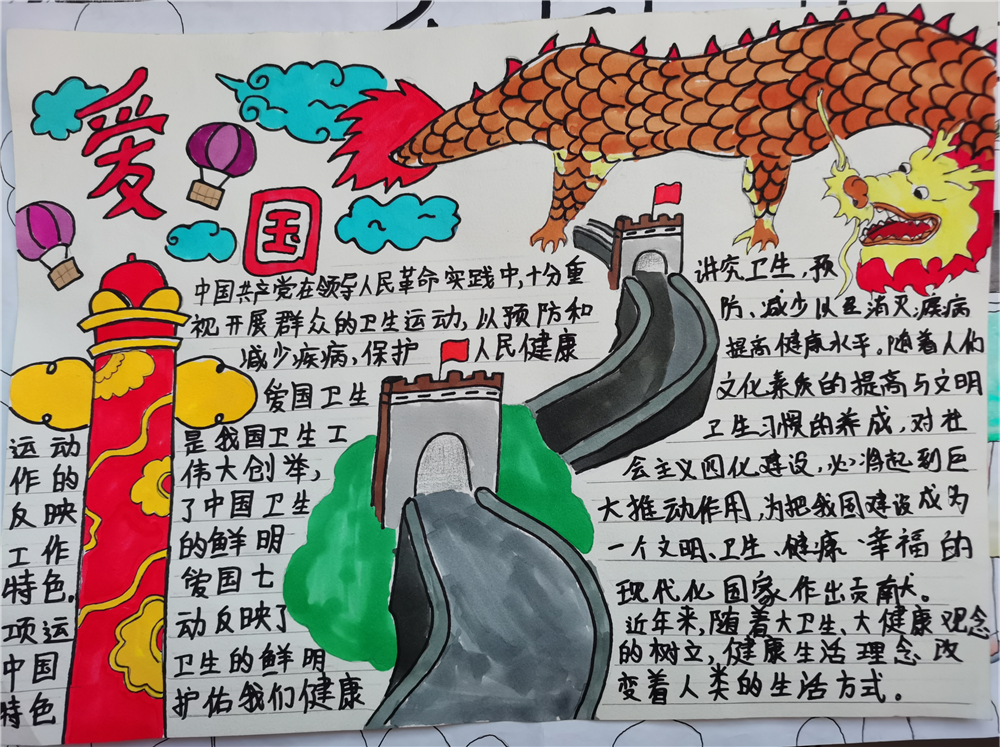 爱
国
中国共产党在领导人民革命实践中,十分重
视开展群众的卫生运动,以预防和
减少疾病,保护 人民健康
爱国卫生
运动 是我国卫生工
作的 伟大创举,
反映 了中国卫生
工作 的鲜明
特色。 爱国七
项运 动反映了
中国 卫生的鲜明
特色 护佑我们健康
讲究卫生,预
防、减少以至消灭疾病
提高健康水平。随着人们
文化素质的提高与文明
卫生习惯的养成,对社
会主义四化建设,必将起到巨
大推动作用,为把我国建设成为
一个文明、卫生、健康、幸福的
现代化国家作出贡献。
近年来,随着大卫生、大健康观念
的树立,健康生活理念改
变着人类的生活方式。